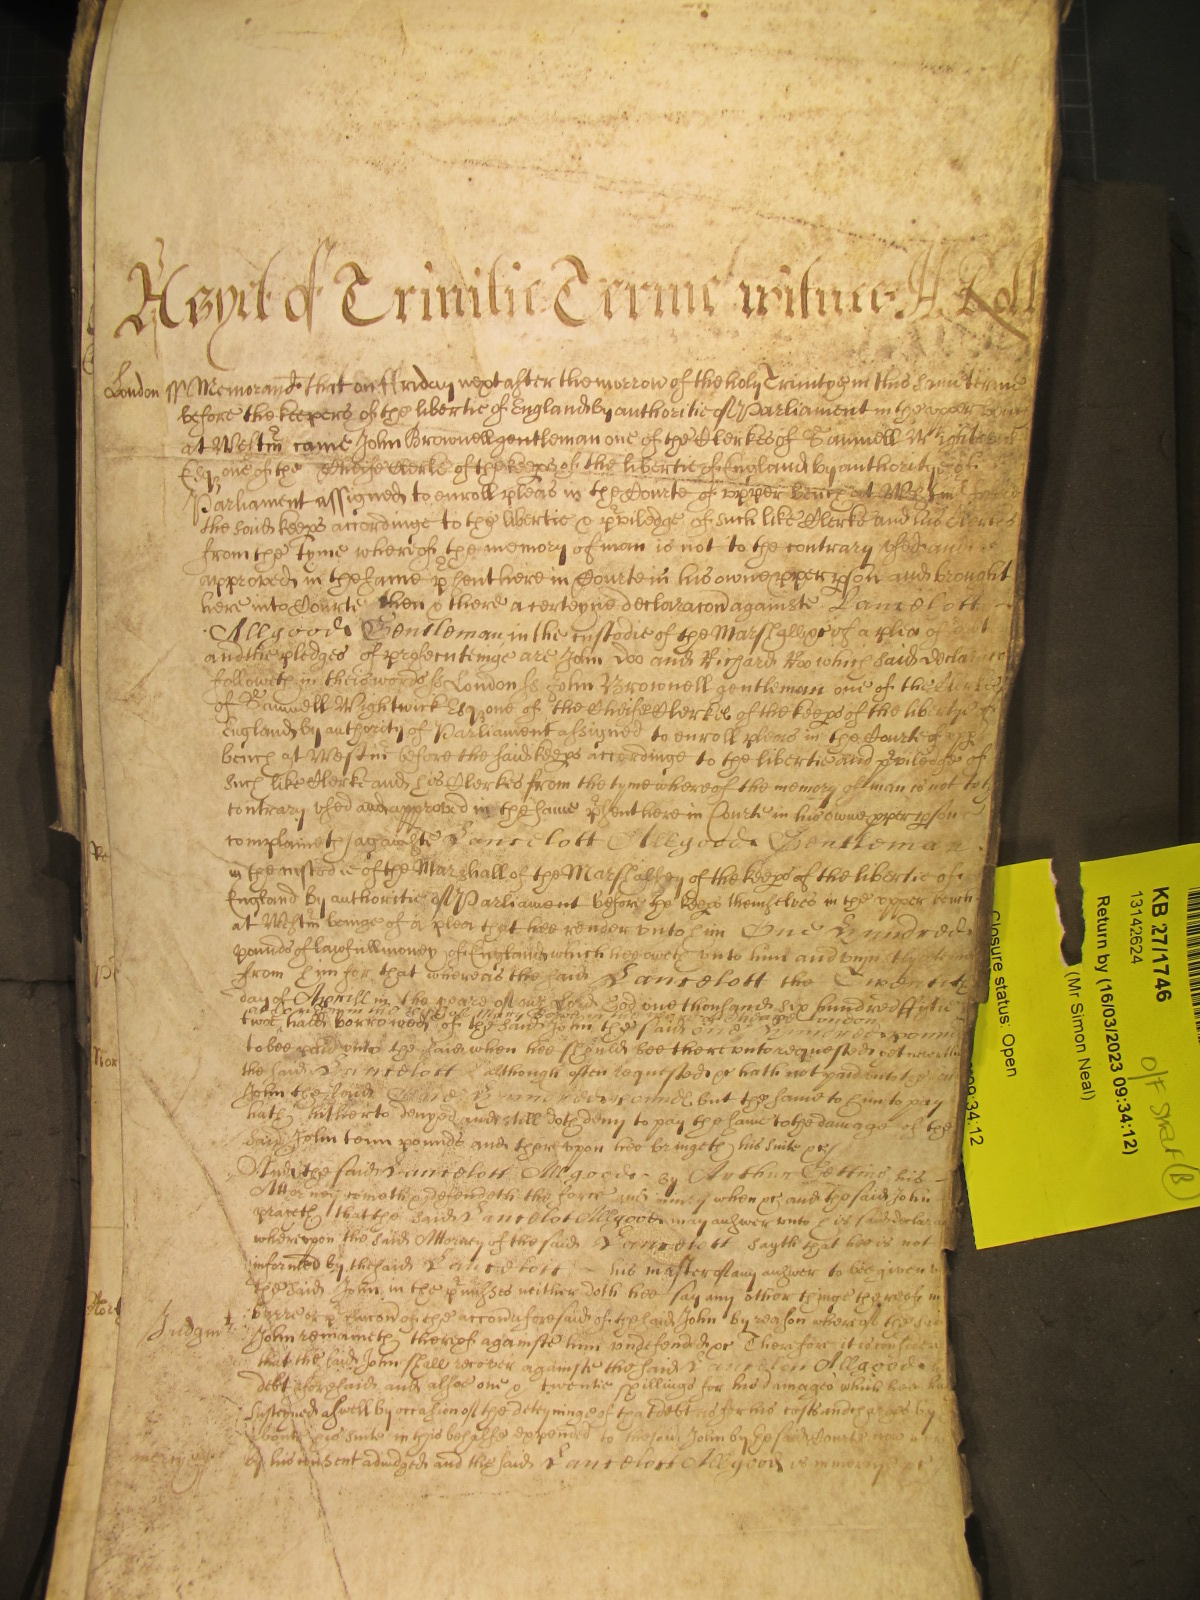 Yet of Trinitie Terme witnes H Roll
London ss Memorand that on ffriday next after the morrow of the holy Trinitye in this same terme
before the keepers of the libertie of England by authoritie of Parliament in the upper
at Westm came John Brownell gentleman one of the Clerkes of Samuell Wightwick
Esq one of the Cheife Clerks of the keeps of the libertie of England by authority of
Parliament assigned to enroll pleas in the Courte of upper bench at Westm before
the said keeps accordinge to the libertie & priviledge of such like Clerks and his Clerkes
from the tyme whereof the memory of man is not to the contrary used and
approved in the same psent here in Courte in his owne pper pson and brought
here into Courte then & there a certeyne declaracon againste Lancelott
Allgood Gentleman in the custodie of the Marshall &c of a plea of debt
and the pledges of prosecutinge are John Doo and Richard Roo which said declaracon
followeth in theis words ss London ss John Brownell gentleman one of the Clerkes
of Samuell Wightwick Esq one of the Cheife Clerkes of the keeps of the libertye of
England by authority of Parliament assigned to enroll pleas in the Courte of upp
bench at Westm before the said keeps accordinge to the libertie and priviledge of
such like Clerks and his Clerkes from the tyme whereof the memory of man is not to the
contrary used and approved in the same psent here in Courte in his owne pper pson
complaineth againste Lancelott Allgood Gentleman
in the custodie of the Marshall of the Marshalsey of the keeps of the libertie of
England by authoritie of Parliament before the keeps themselves in the upper bench
at Westm beinge of a plea that hee render unto him One Hundred
pounds of lawfull money of England which hee oweth unto him and
from him for that whereas the said Lancelott the Twentith
day of Aprill in the yeare of our Lord God one thousand six hundred fiftie
at London in the of Mary
twoe hadd borrowed of the said John the said One Hundred pounds
to bee paid unto the said when hee should bee thereunto requested yet neverthe
the said Lancelott although often requested &c hath not paid unto the said
John the said One Hundred pounds but the same to him to pay
hath hitherto denyed and still doth deny to pay the same to the damage of the
said John tenn pounds and thereupon hee bringeth his suite &c
And the said Lancelott Allgood by Arthur his
Attorney cometh & defendeth the force and iniury when &c and the said John
prayeth that the said Lancelott Allgood may answer unto his said declaracon
whereupon the said Attorney of the said Lancelott sayth that hee is not
informed by the said Lancelott his master of any answer to bee given
the said John in the premisses neither doth hee say any other thinge thereof in
barre or of the accon aforesaid of the said John by reason whereof the said
Judgmt
John remaineth thereof againste him undefended &c Therefore it is considered
that the said John shall recover againste the said Lancelott Allgood
debt aforesaid and alsoe one & twentie shillings for his damages which hee hath
susteyned aswell by occasion of the deteyninge of that debt as for his costs and charges by
aboute his suite in this behalfe expended to the said John by the said Courte now
by his consent adiudged and the said Lancelott Allgood is in mercye &c
mercye
KB 27/1746
13142624
Return by (16/03/2023 09:34:12)
(Mr Simon Neal)
Closure status: Open
09:34:12
O/F Straw (B)